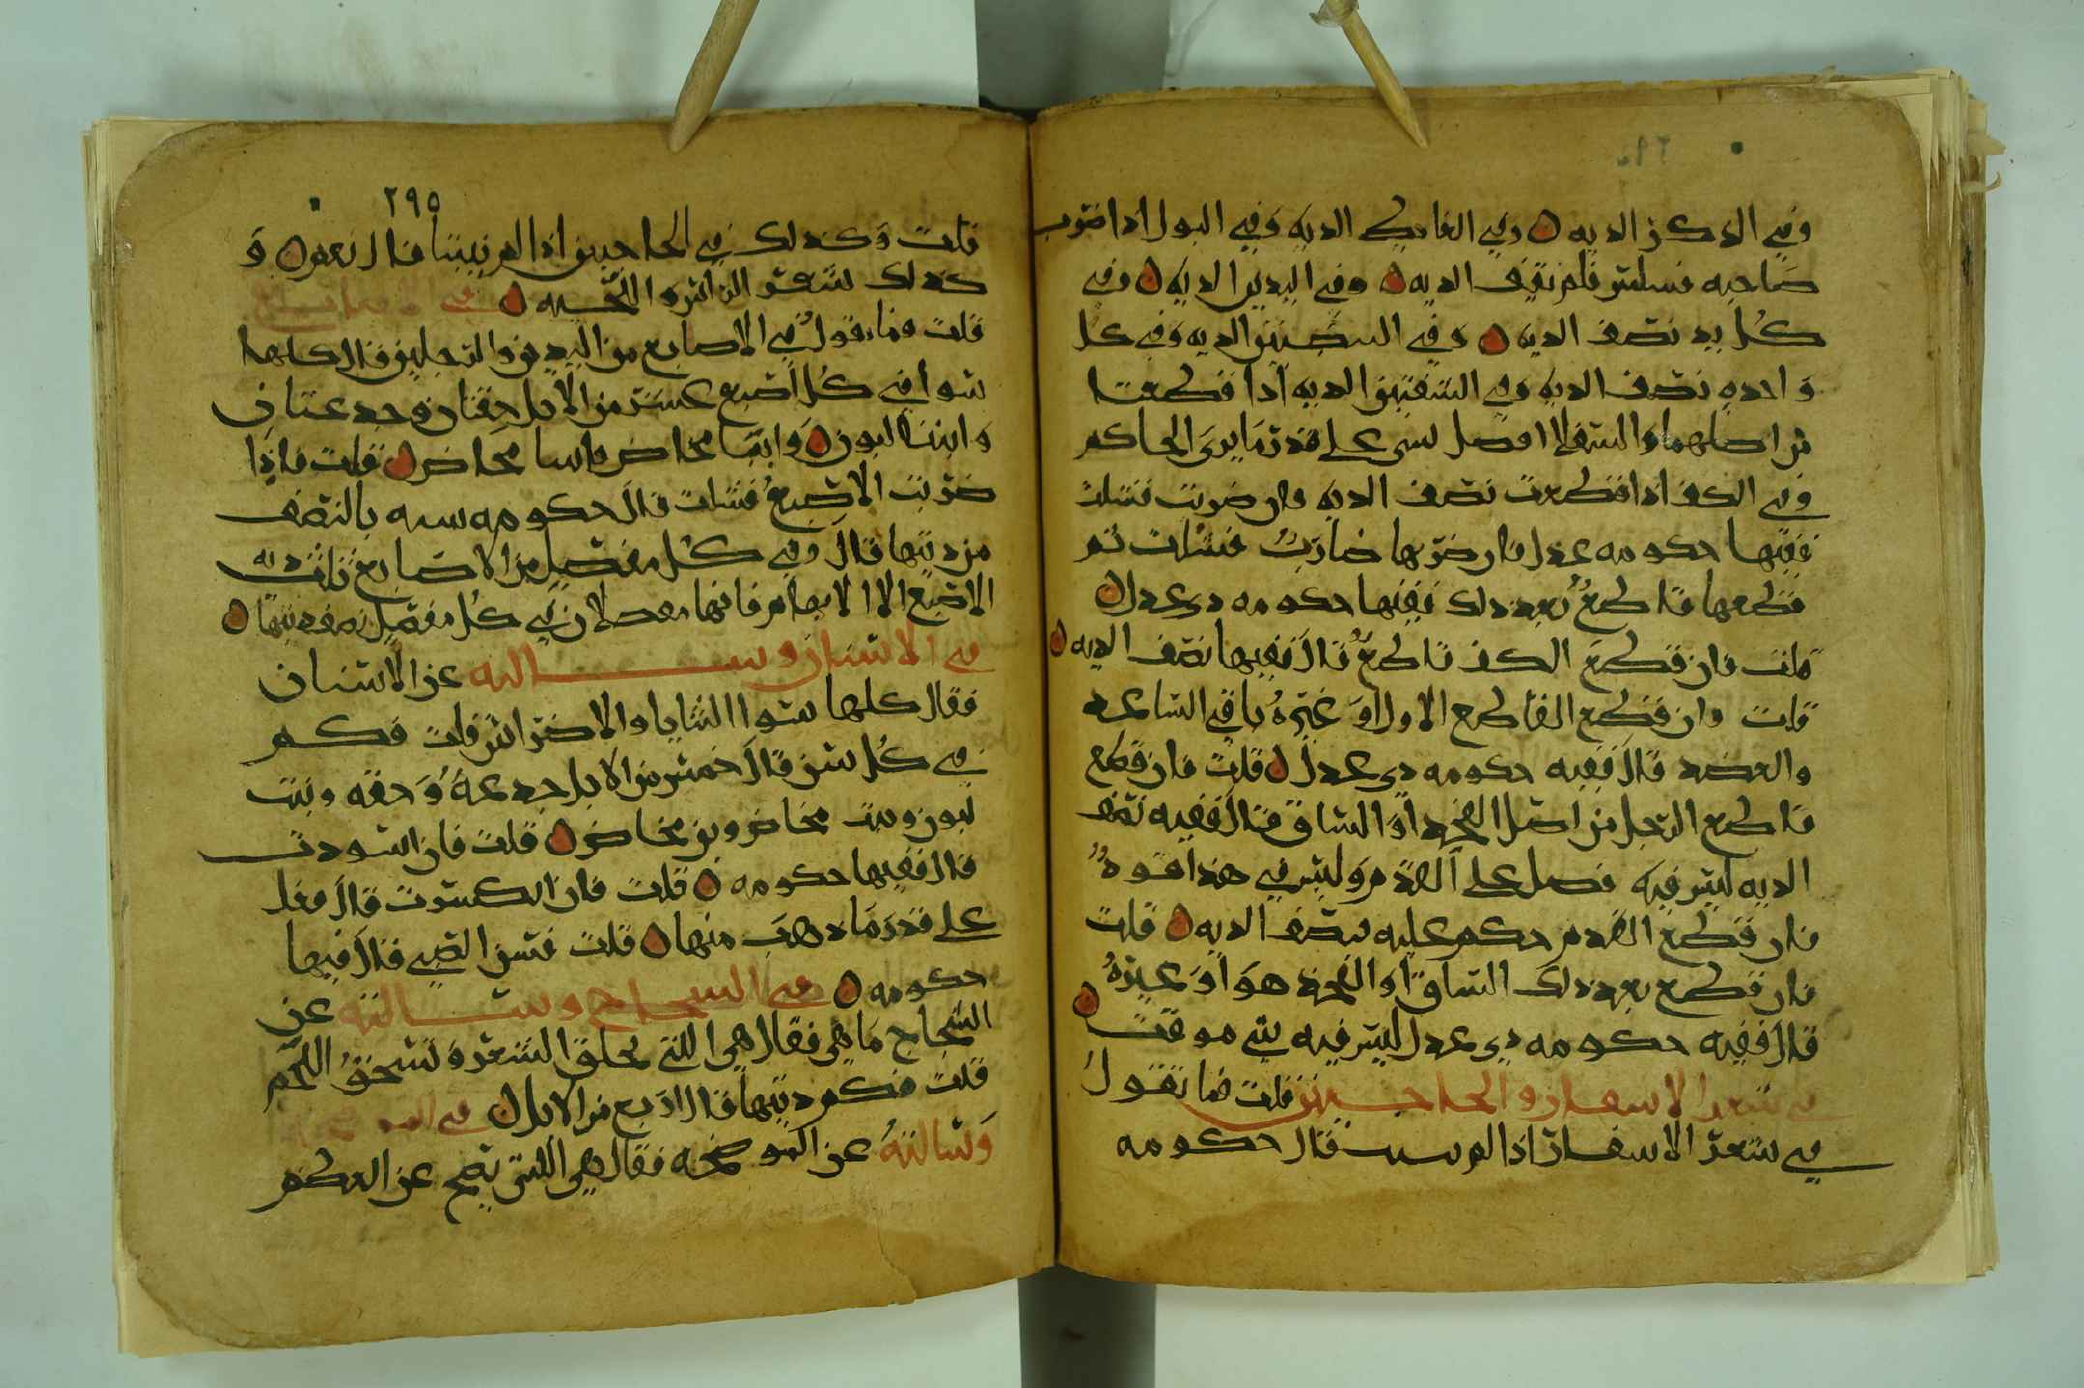 وفي الذكر الديه ن وفي الغايط الديه وفي البول اذا ضرب
صاحبه فسلس فلم يقف الديه ن وفي اليدين الديه ن وفي
كل يد نصف الديه ن وفي البيضتين الديه وفي كل
واحده نصف الديه وفي الشفتين الديه اذا قطعتا
من اصلهما والسفلا افضل بشي على قدر ما يرى الحاكم
وفي الكف اذا قطعت نصف الديه وان ضربت فشلت
ففيها حكومه عدل فان ضربها ضارب فشلت ثم
قطعها قاطع بعد ذلك ففيها حكومه ذي عدل ن
قلت فان قطع الكف قاطع قال ففيها نصف الديه ن
قلت وان قطع القاطع الاول او غيره باقي الساعد
والعضد قال ففيه حكومه ذي عدل ن قلت فان قطع
قاطع الرجل من اصل الفخذ او الساق قال ففيه نصف
الديه ليس فيه فضل على القدم وليس في هذا قود
فان قطع القدم حكم عليه بنصف الديه ن قلت
فان قطع بعد ذلك الساق او الفخذ هو او غيره
قال ففيه حكومه ذي عدل ليس فيه شي موقت ن
في شعر الاشفار والحاجبين قلت فما تقول
في شعر الاشفار اذا لم ينبت قال حكومه
٢٩٥
قلت وكذلك في الحاجبين اذا لم ينبتا قال نعم ن و
كذلك شعر الراس واللحيه ن في الاصابع
قلت وما تقول في الاصابع من اليدين والرجلين قال كلها
سوا في كل اصبع عشر من الابل حقتان وجذعتان
وابنتا لبون ن وابنتا مخاض وابنا مخاض ن قلت فاذا
ضربت الاصبع فشلت قال حكومه بالنصف
من ديتها قال وفي كل مفصل من الاصابع ثلث ديه
الاصبع الا الابهام فانها مفصلان في كل مفصل نصف ديتها ن
في الاسنان وسالته عن الاسنان
فقال كلها سوا الثنايا والاضراس قلت فكم
في كل سن قال خمس من الابل جذعه وحقه وبنت
لبون وبنت مخاض وبن مخاض ن قلت فان اسودت
قال ففيها حكومه ن قلت فان انكسرت قال فعلى
على قدر ما ذهب منها ن قلت فسن الصبي قال فيها
حكومه ن في الشجاج وسالته عن
الشجاج ما هي فقال هي اللتي تحلق الشعر وتسحق اللحم
قلت فكم ديتها قال اربع من الابل ن في الموضحه
وسالته عن الموضحه فقال هي اللتي تضح عن العظم